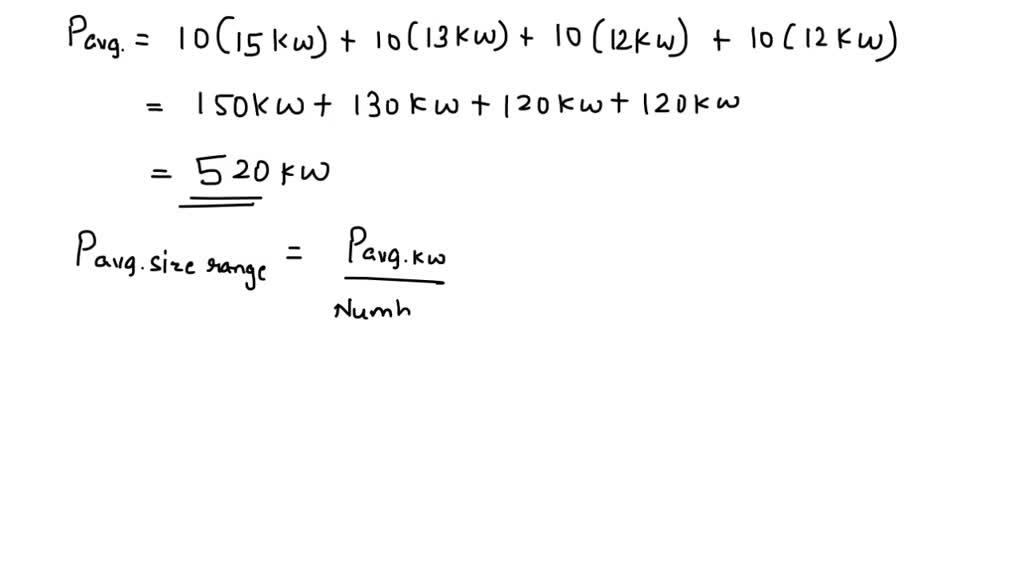 Pavg. = 10(15kw) + 10(13kw) + 10(12kw) + 10(12kw)
= 150kw + 130kw + 120kw + 120kw
= 520kw
Pavg.size range = Pavg.kw
Numh